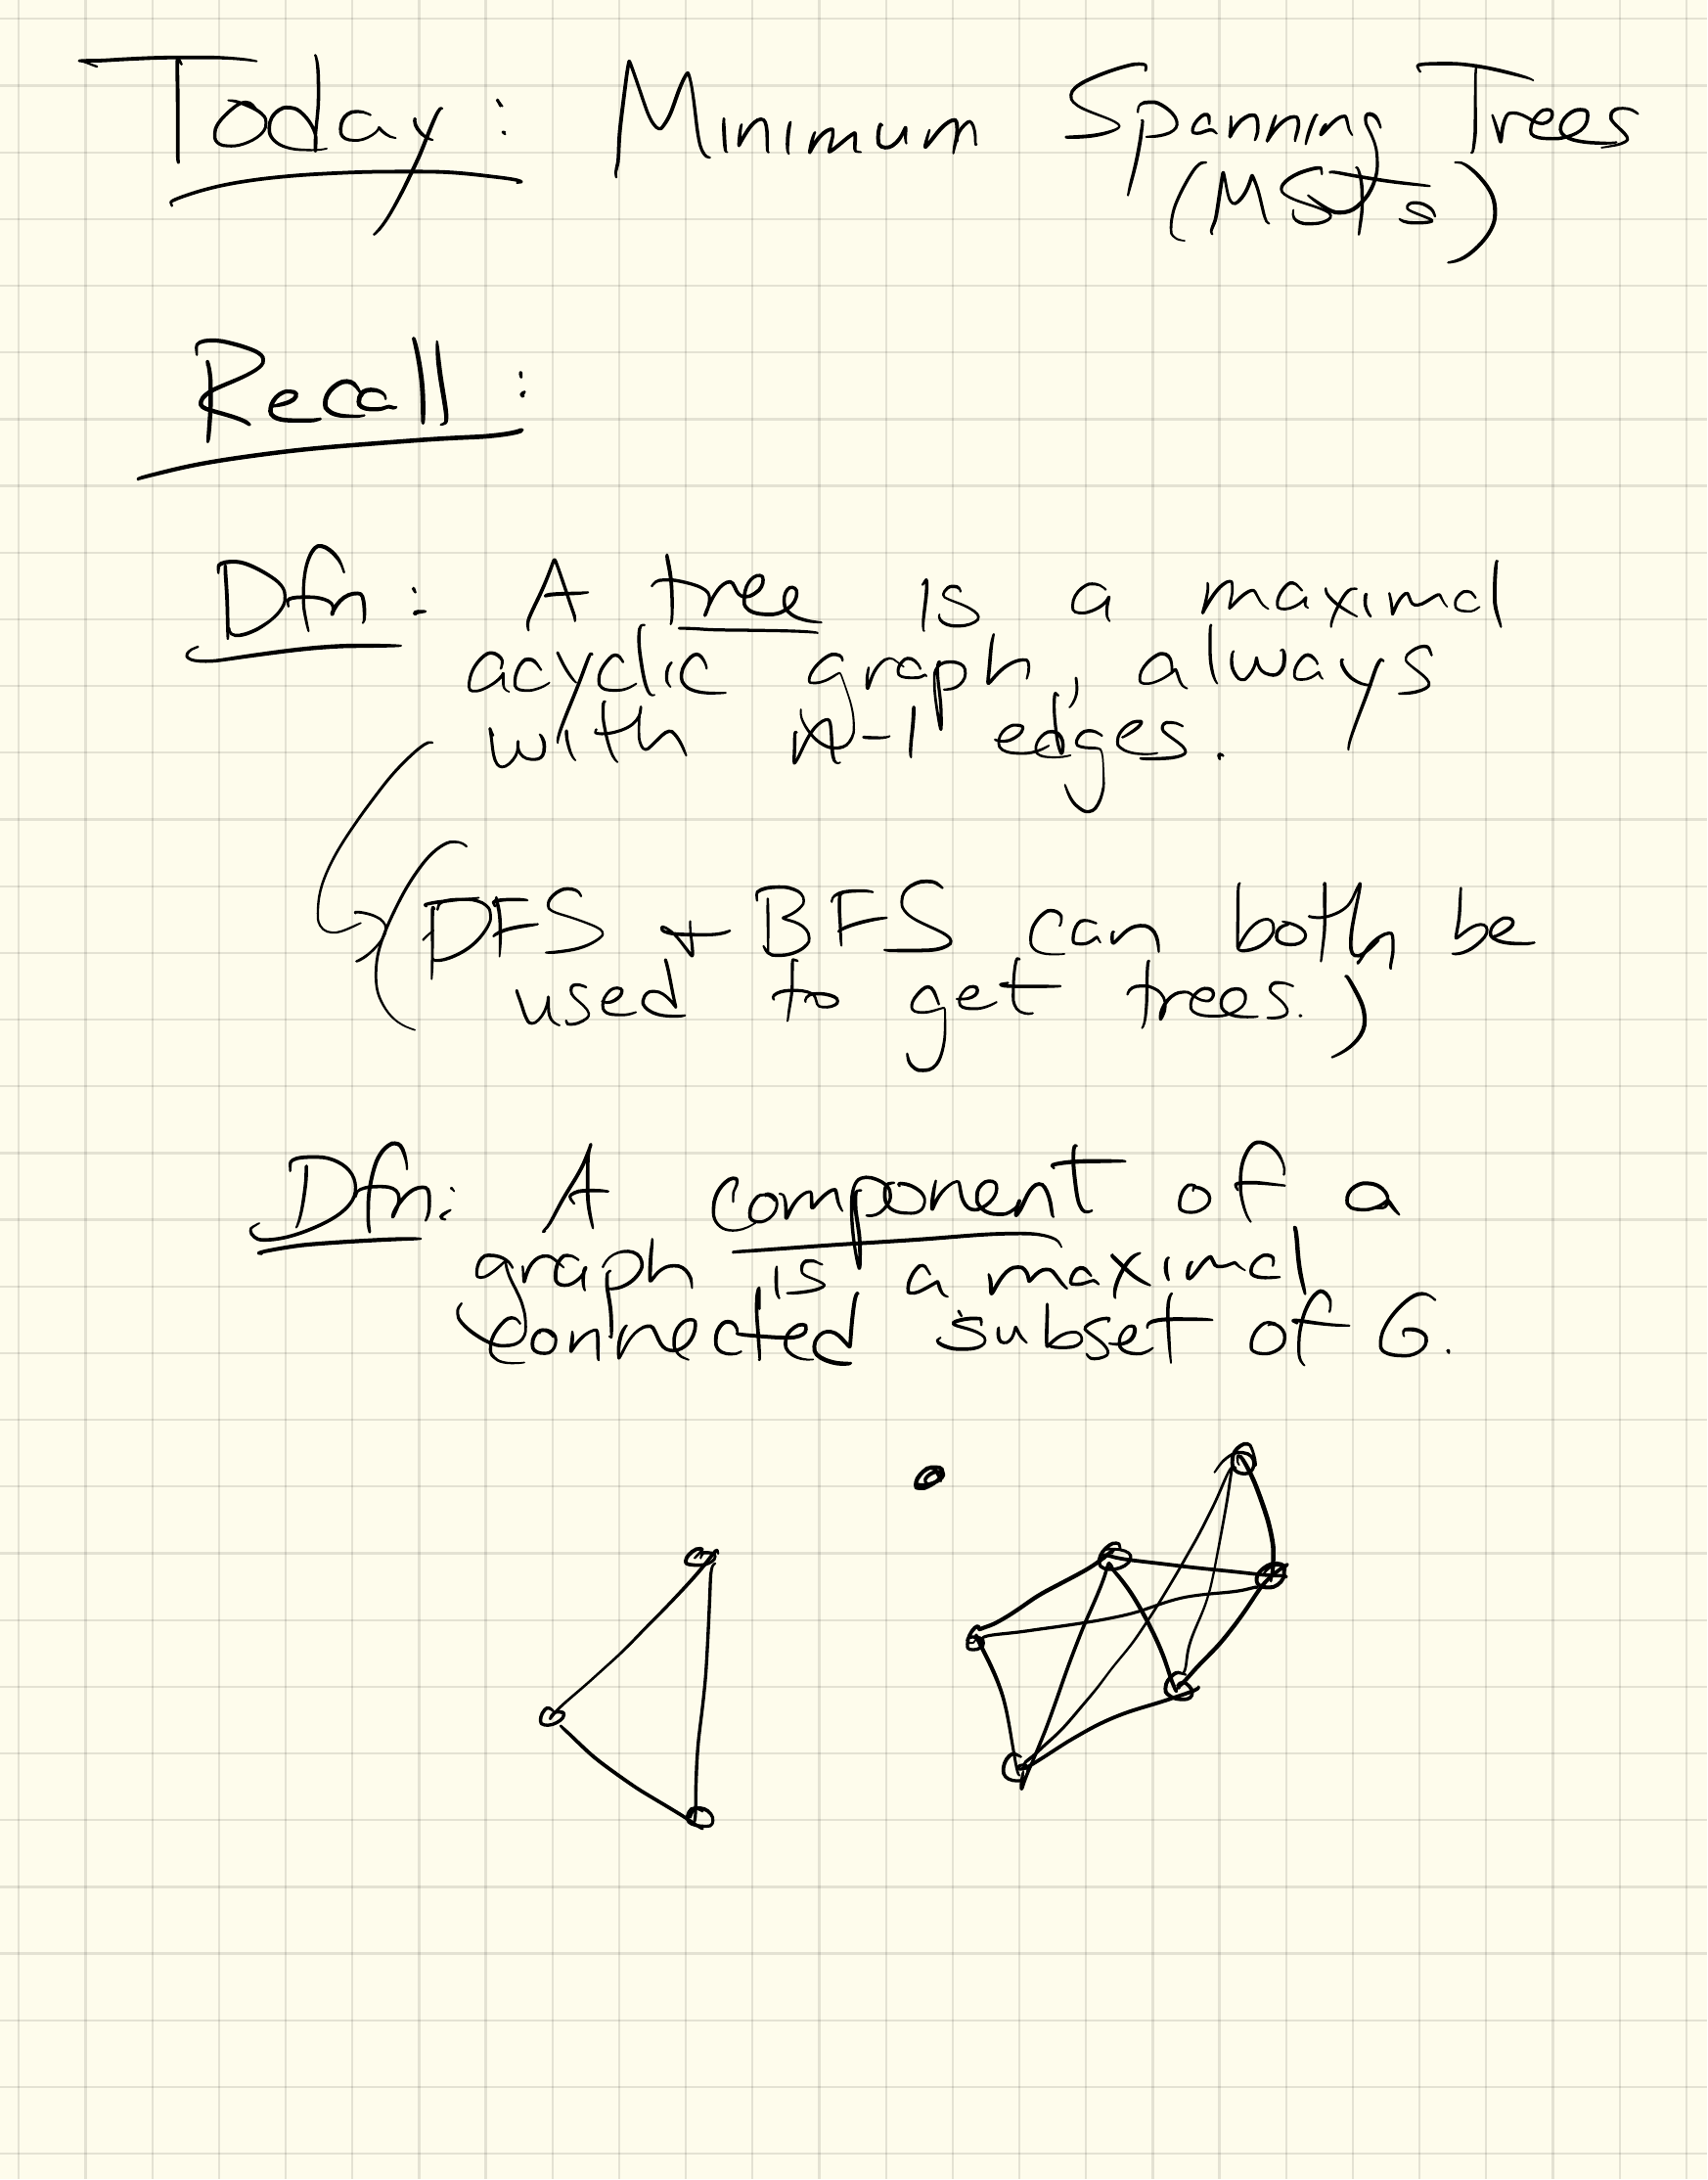 Today: Minimum Spanning Trees
(MSTs)
Recall:
Dfn: A tree is a maximal
acyclic graph, always
with n-1 edges.
(DFS + BFS can both be
used to get trees.)
Dfn: A component of a
graph is a maximal
connected subset of G.